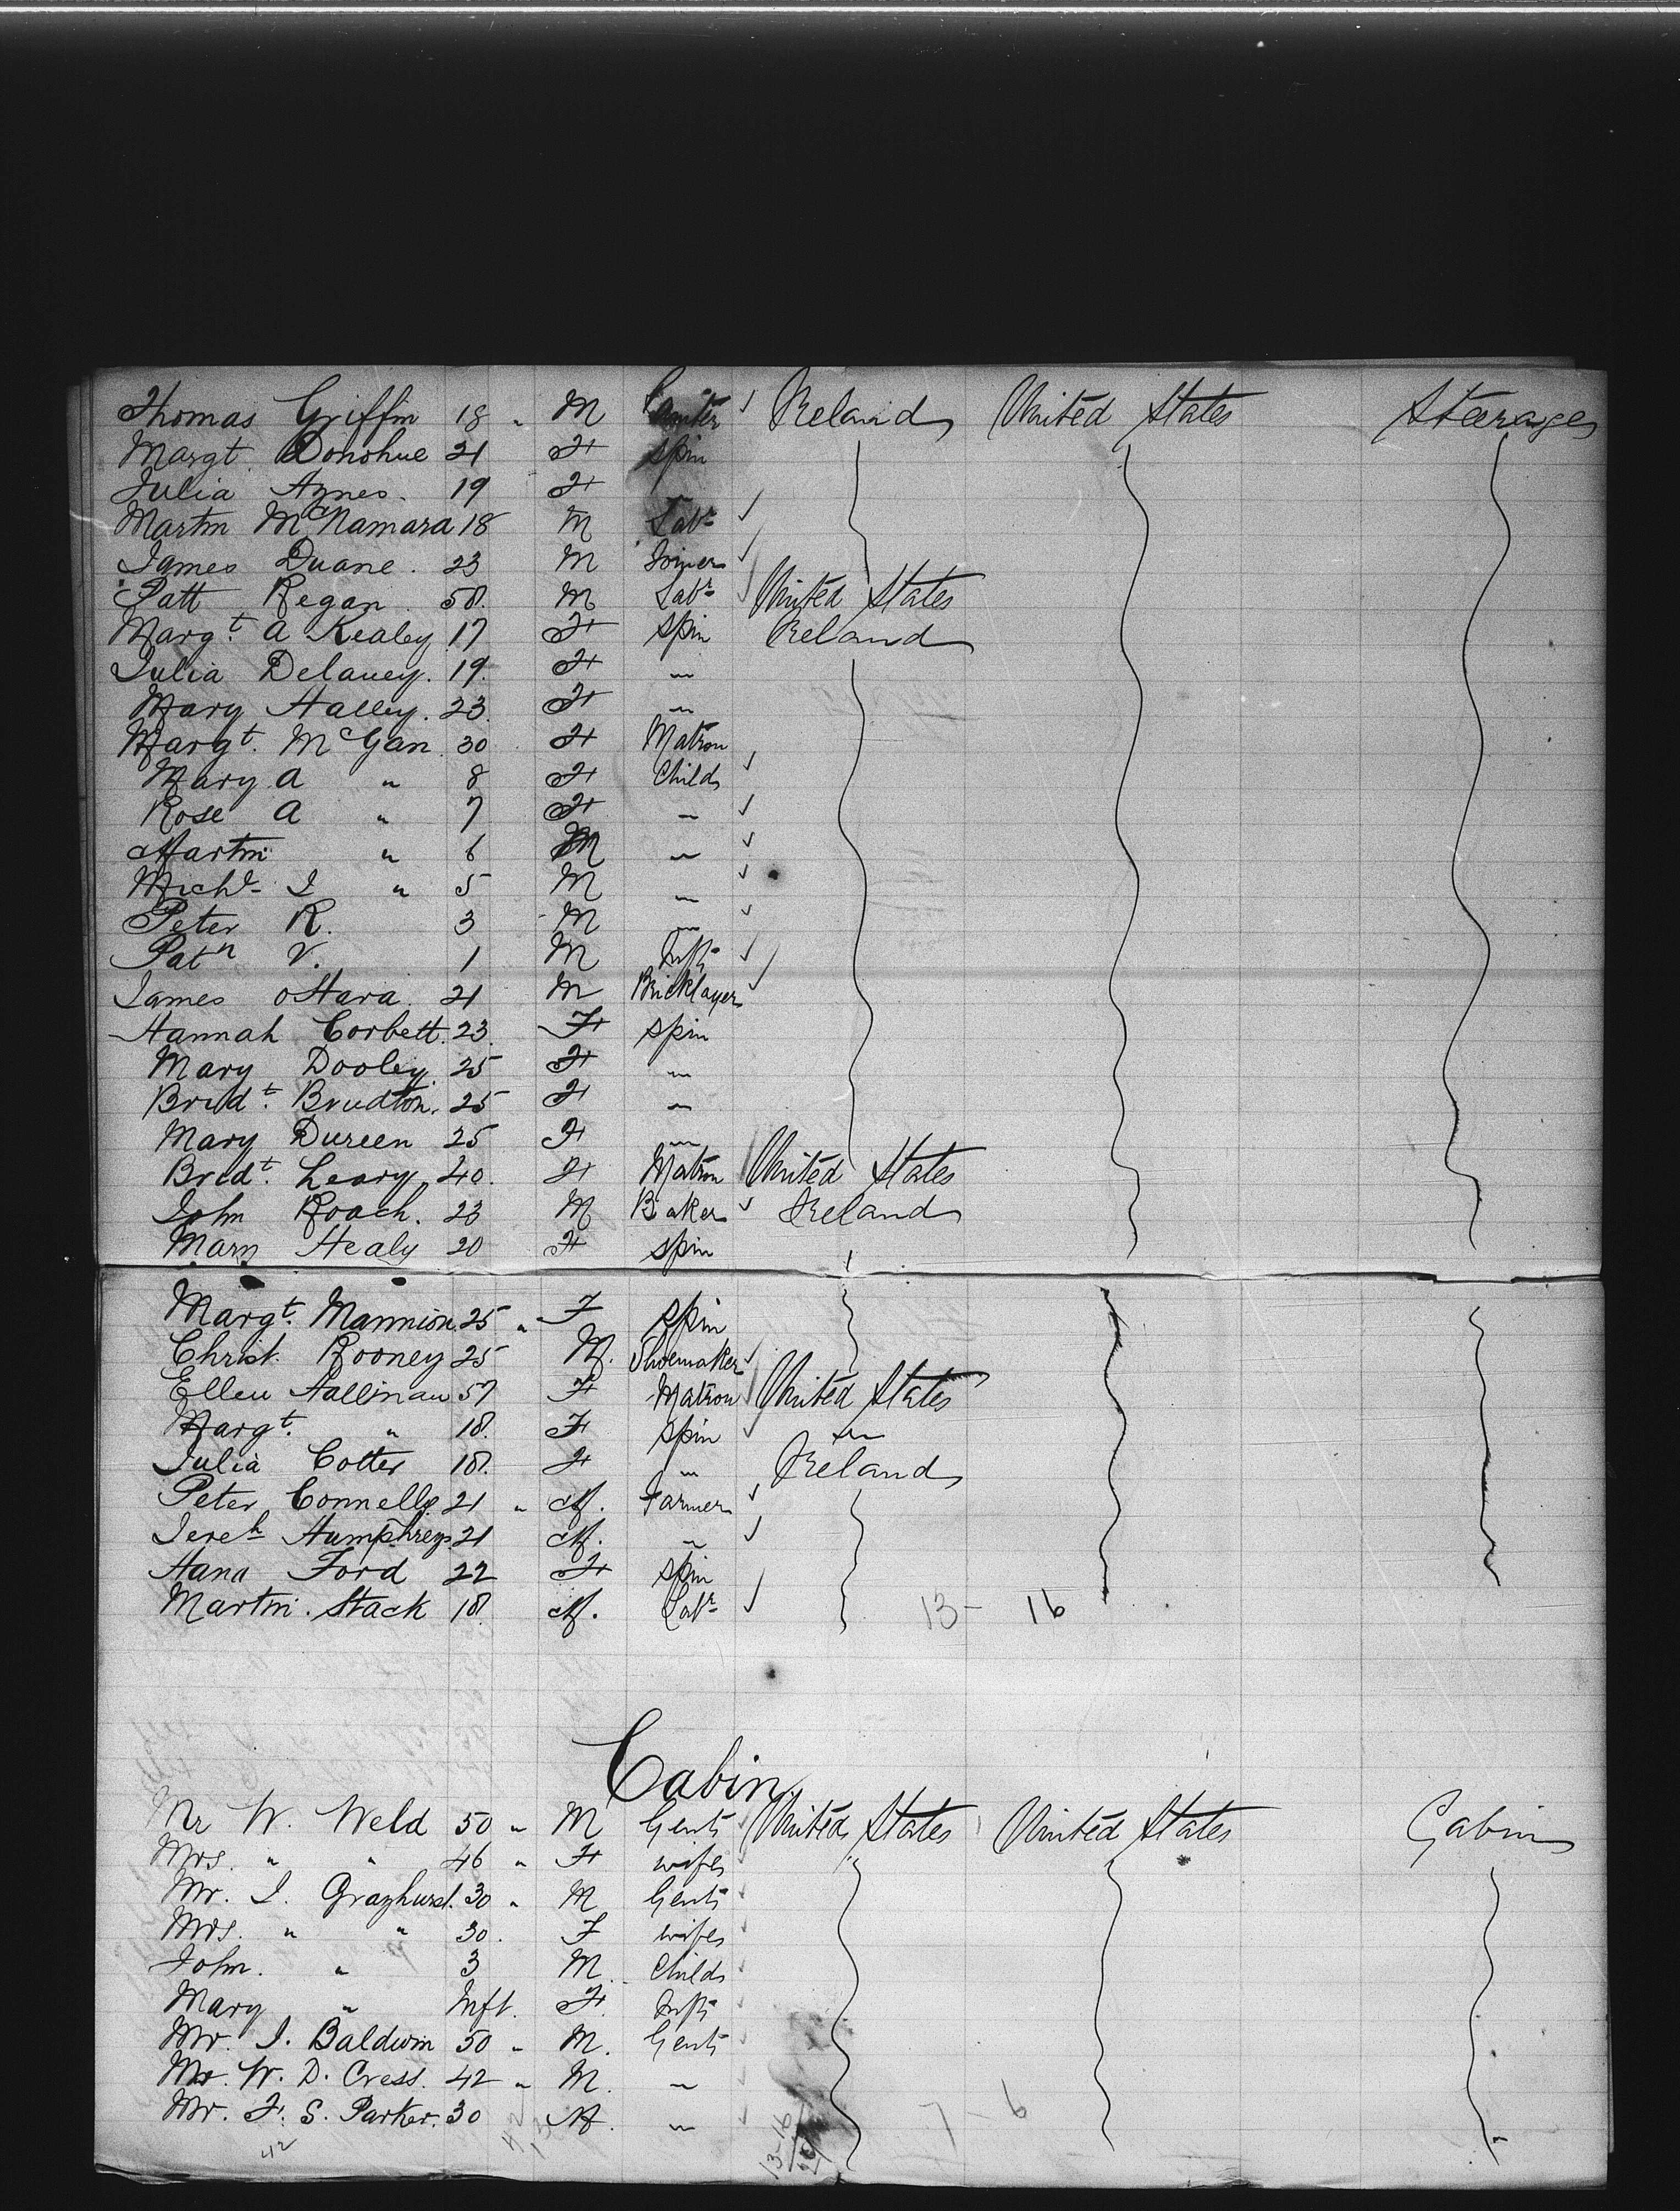 Thomas Griffin 18 " M Ireland United States Steerage
Margt. Donohue 21 F spin
Julia Agnes. 19 F "
Martin McNamara 18 M Labr
James Duane. 23 M Joiner
Patt Regan. 50. M Labr United States
Margt. A Kealey 17 F spin Ireland
Julia Delaney. 19. F "
Mary Halley. 23. F "
Margt. McGan 30 F Matron
Mary A " 8 F Child
Rose A " 7 F "
Martin " 6 M "
Michl J " 5 M "
Peter R. 3 M "
Patk V. 1 M Inft
James oHara. 21 M Bricklayer
Hannah Corbett. 23. F spin
Mary Dooley 25 F "
Bridt. 25 F "
Mary Dureen 25 F "
Bridt. Leary 40. F Matron United States
John Roach. 23 M Baker Ireland
Mary Healy 20 F spin
Margt. Mannion 25 " F spin
Christ. Rooney 25 M. Shoemaker
Ellen Hallinan 57 F Matron United States
Margt. " 18. F spin "
Julia Cotter 18. F " Ireland
Peter Connelly 21 " M. Farmer
Jereh Humphreys 21 M. "
Hana Ford 22 F spin
Martin. Stack 18 M. Labr 13- 16
Cabin
Mr W. Weld 50 " M Gent United States United States Cabin
Mrs. " " 46 " F wife
Mr. J. Grayhurst. 30 " M Gent
Mrs. " " 30. F wife
John. " 3 M. Child
Mary " Inft. F. Inft
Mr. J. Baldwin 50 " M. Gent
Mr. W. D. Cress. 42 " M. "
Mr. F. S. Parker. 30 M. " 7 - 6
42 42 13 13-16